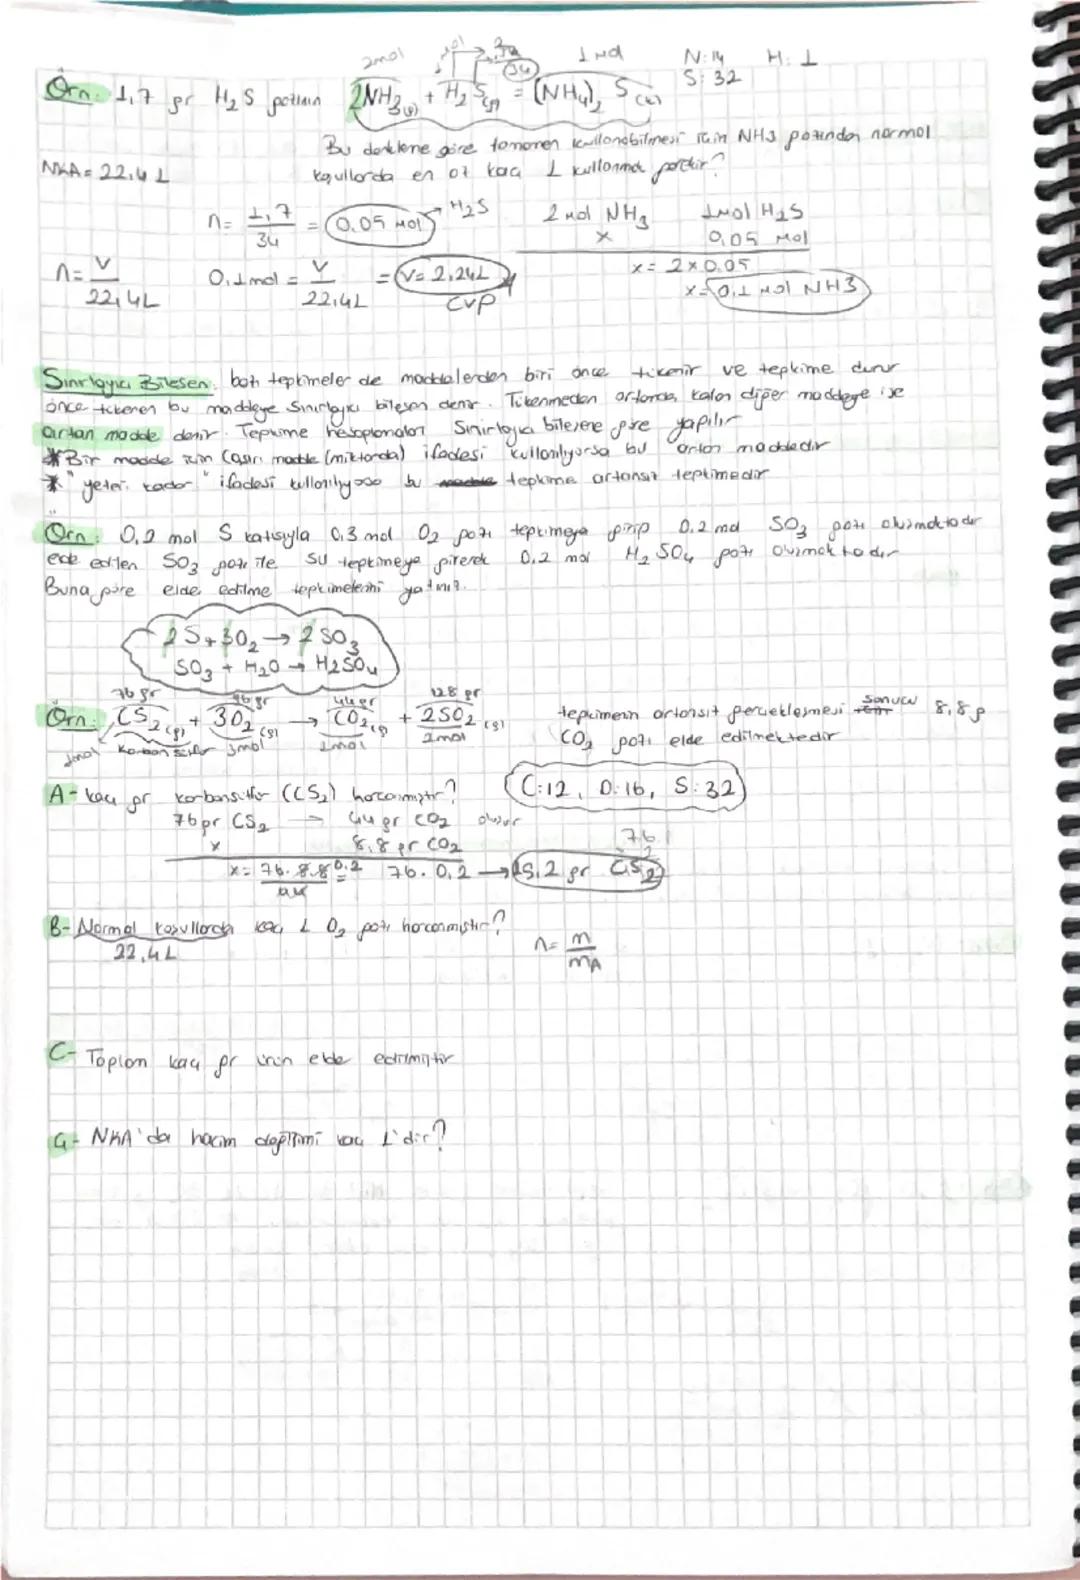 2mol 1 mol N: 14 H: 1
Örn: 1,7 gr H2S gazının 2NH3(g) + H2S(g) = (NH4)2 S(k) S: 32
34
Bu denkleme göre tamamen kullanabilmesi için NH3 gazından normal
NKA= 22,4 L koşullarda en az kaç L kullanmak gerekir?
n= 1,7/34 = 0,05 mol → H2S 2 mol NH3 1mol H2S
x 0,05 mol
n= V/22,4L 0,1mol = V/22,4L = V= 2,24L x= 2x0.05
CVP x= 0,1 mol NH3
Sınırlayıcı Bileşen: bazı tepkimeler de maddelerden biri önce tükenir ve tepkime durur
önce tükenen bu maddeye sınırlayıcı bileşen denir. Tükenmeden ortamda kalan diğer maddeye ise
artan madde denir. Tepkime hesaplamaları sınırlayıcı bileşene göre yapılır
* Bir madde için (aşırı madde (miktarda) ifadesi kullanılıyorsa bu artan maddedir
* "yeteri kadar" ifadesi kullanılıyorsa bu tepkime artansız tepkimedir
Örn: 0,2 mol S katısıyla 0,3 mol O2 gazı tepkimeye girip 0.2 mol SO3 gazı oluşmaktadır
elde edilen SO3 gazı ile su tepkimeye girerek 0,2 mol H2SO4 gazı oluşmaktadır
Buna göre elde edilme tepkimelerini yazınız.
2S+3O2 → 2SO3
SO3 + H2O → H2SO4
76 gr 96 gr 44 gr 128 gr
Örn: CS2(g) + 3O2(g) → CO2(g) + 2SO2(g) tepkimenin artansız gerçekleşmesi sonucu 8,8 g
1mol Karbon sülfür 3mol 1mol 2mol CO2 gazı elde edilmektedir
A- kaç gr karbonsülfür (CS2) harcanmıştır? C:12, O:16, S:32
76gr CS2 → 44 gr CO2 oluşur
x 8,8 gr CO2 76
x= 76.8.8/44 0.2 76. 0,2 → 15,2 gr CS2
B- Normal koşullarda kaç L O2 gazı harcanmıştır?
22,4L n= m/mA
C- Toplam kaç gr ürün elde edilmiştir
Ç- NKA'da hacim değişimi kaç L'dir?